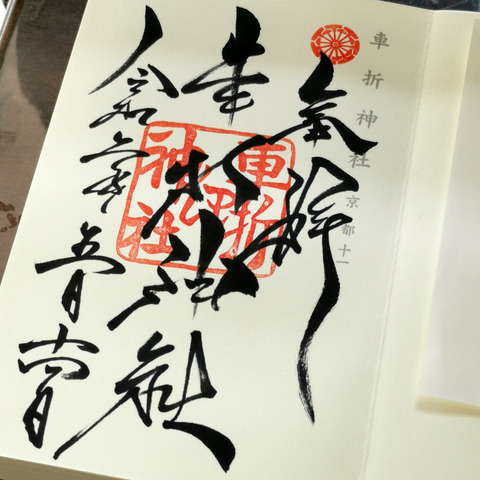 車折神社 京都 十一
奉拝
車折神社
車折
神社
令和六年
五月
十四日